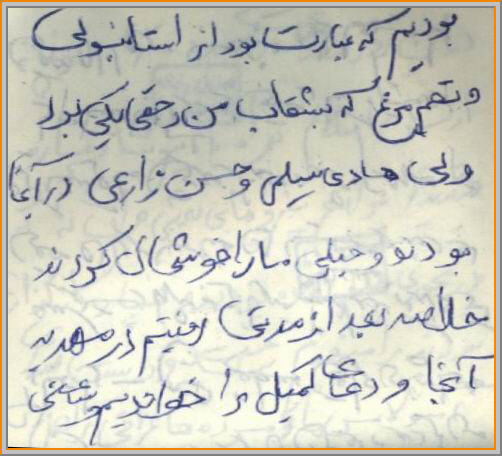 بودیم که عبارت بود از استانبولی
و تخم مرغ که بشقاب من و حقی یکی بود
ولی هادی سیلمی و حسن زارعی در آنجا
بودند و خیلی ما را خوشحال کردند
خلاصه بعد از مدتی رفتیم در مهدیه
آنجا و دعای کمیل را خواندیم و